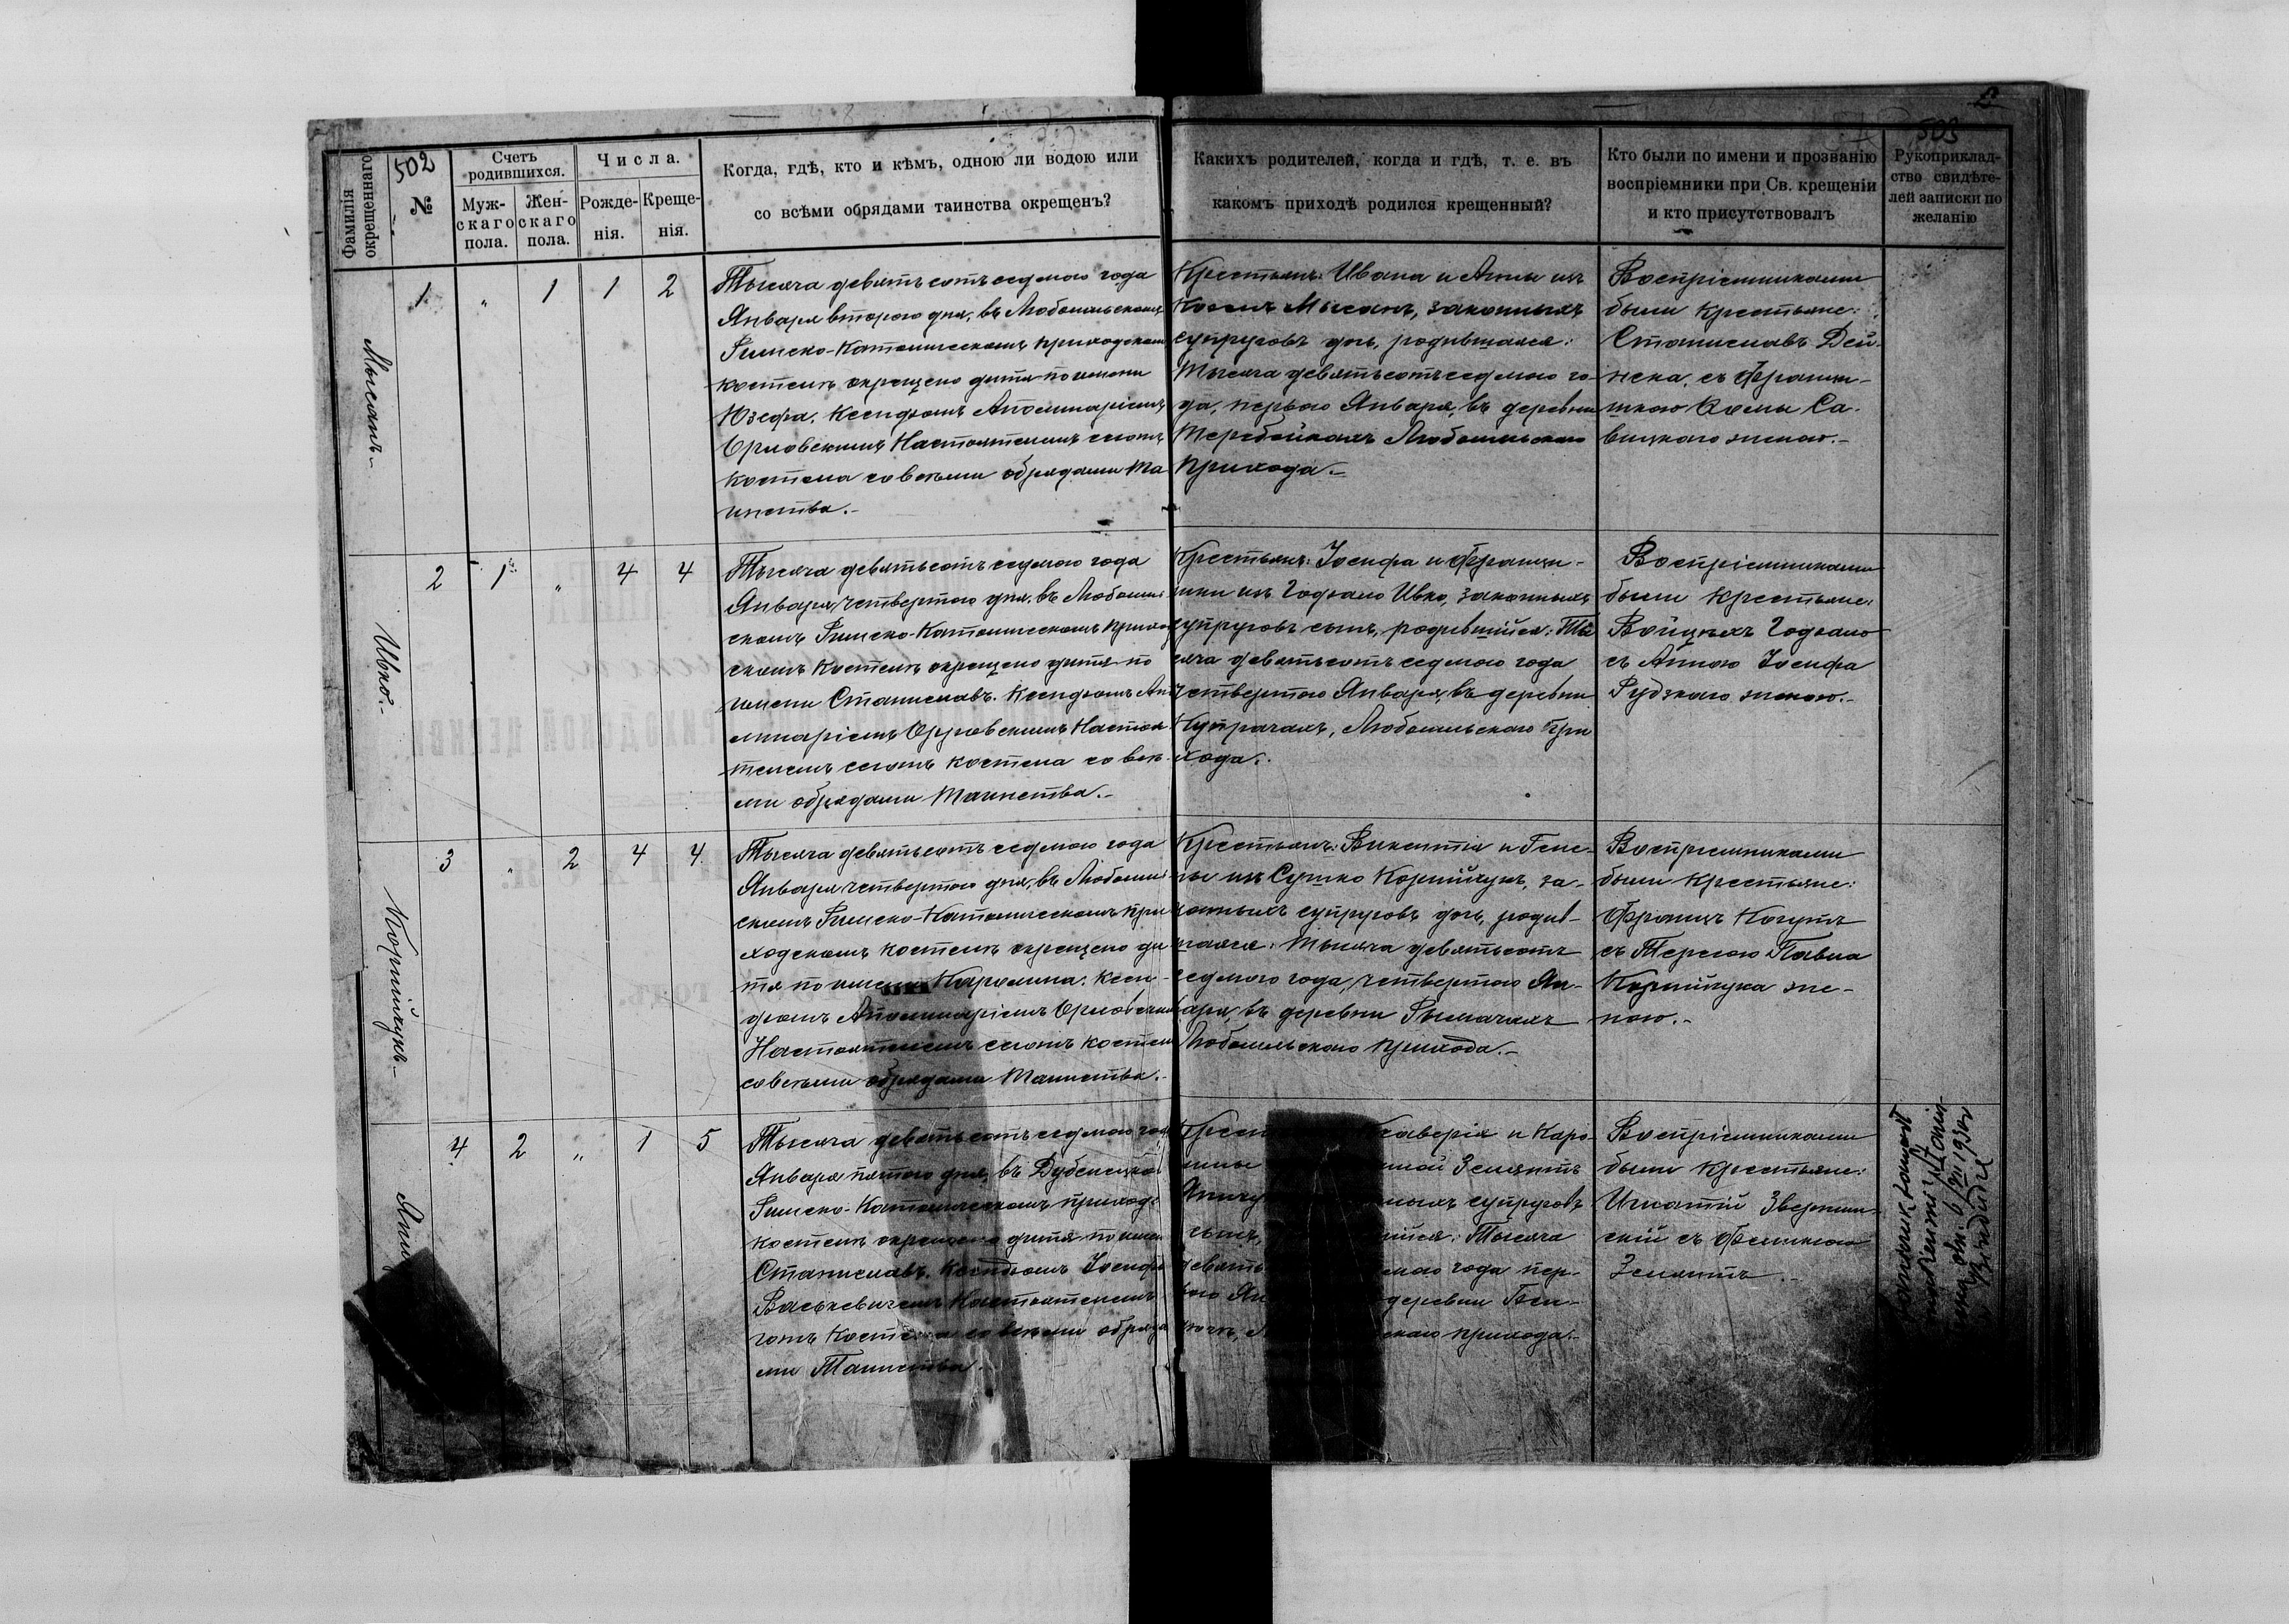 502
503
Фамилія окрещеннаго
№
Счетъ родившихся.
Мужскаго пола.
Женскаго пола.
Числа.
Рожденія.
Крещенія.
Когда, гдѣ, кто и кѣмъ, одною ли водою или
со всѣми обрядами таинства окрещенъ?
Какихъ родителей, когда и гдѣ, т. е. въ
какомъ приходѣ родился крещенный?
Кто были по имени и прозванію
воспріемники при Св. крещеніи
и кто присутствовалъ
Рукоприклад-
ство свидѣте-
лей записки по
желанію
Мысакъ
1. " 1 1 2
Тысяча девятьсотъ седмого года
Января второго дня, въ Любомльскомъ
Римско-Католическомъ приходскомъ
костелѣ окрещено дитя по имени
Юзефа. Ксендзомъ Аполинаріемъ
Орловскимъ Настоятелемъ сего
костела со всѣми обрядами Та
инства.
Крестьянъ: Ивана и Анны изъ
Мысакъ, законныхъ
супруговъ дочь, родившаяся:
Тысяча девятьсотъ седмого го-
да, перваго Января, въ деревни
Теребейкахъ Любомльскаго
прихода.
Воспріемниками
были крестьяне:
Станиславъ Дей-
нека, съ Францы-
шкою Са-
вицкаго женою.
Ивко.
2 1 " 4 4
Тысяча девятьсотъ седмого года
Января четвертого дня, въ Любомль
скомъ Римско-Католическомъ приход
скомъ костелѣ окрещено дитя по
имени Станиславъ. Ксендзомъ Апо
линаріемъ Орловскимъ Настоя
телемъ сего костела со всѣ
ми обрядами Таинства.
Крестьянъ: Іосифа и Францы-
шки изъ Годзало Ивко, законныхъ
супруговъ сынъ, родившійся: Ты
сяча девятьсотъ седмого года
четвертого Января, въ деревни
Купрачахъ, Любомльскаго при
хода.
Воспріемниками
были крестьяне:
Войцѣхъ Годзало
съ Анною Іосифа
Рудзкаго женою.
Корнійчукъ
3 " 2 4 4.
Тысяча девятьсотъ седмого года
Января четвертого дня, въ Любомль
скомъ Римско-Католическомъ при
ходскомъ костелѣ окрещено ди
тя по имени Каролина. Ксен-
дзомъ Аполинаріемъ Орловским
Настоятелемъ сего костела
со всѣми обрядами Таинства.
Крестьянъ: Викентія и Геле-
ны изъ Сушко Корнійчукъ, за-
конныхъ супруговъ дочь, родив-
шаяся: Тысяча девятьсотъ
седмого года, четвертого Ян-
варя, въ деревни Рымачахъ
Любомльскаго прихода.
Воспріемниками
были крестьяне:
Францъ Когутъ
съ Терезою Павла
Корнійчука же-
ною.
4 2 " 1 5
Тысяча девятьсотъ седмого года
Января пятого дня, въ Дубенецком
Римско-Католическомъ приходс
костелѣ окрещено дитя по имени
Станиславъ. Ксендзомъ Іосифо
Васькевичемъ Настоятелемъ
костела со всѣми обряда
ми Таинства.
Ксаверія и Каро-
лины Землянтъ
супруговъ
сынъ, Тысяча
девять года пер-
ваго Ян деревни
прихода.
Воспріемниками
были крестьяне:
Игнатій Звержин-
скій съ Феликсою
Землянтъ.